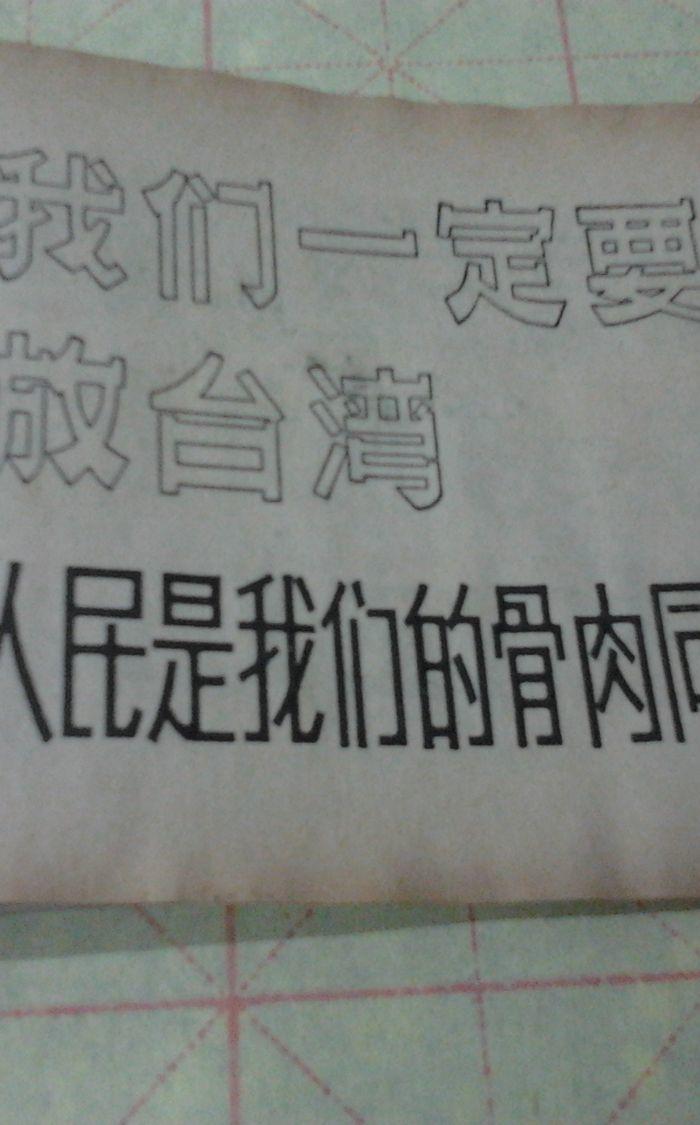 我们一定要
放台湾
人民是我们的骨肉同